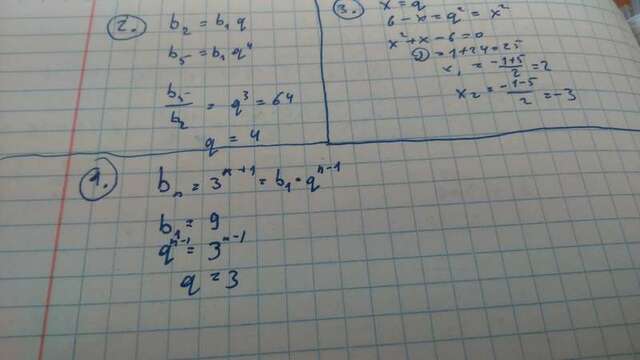 2.
b₂ = b₁q
b₅ = b₁q⁴
b₅/b₂ = q³ = 64
q = 4
3.
x = q
6 - x = q² = x²
x² + x - 6 = 0
D = 1 + 24 = 25
x₁ = (-1+5)/2 = 2
x₂ = (-1-5)/2 = -3
1.
bₙ = 3ⁿ⁺¹ = b₁ · qⁿ⁻¹
b₁ = 9
qⁿ⁻¹ = 3ⁿ⁻¹
q = 3